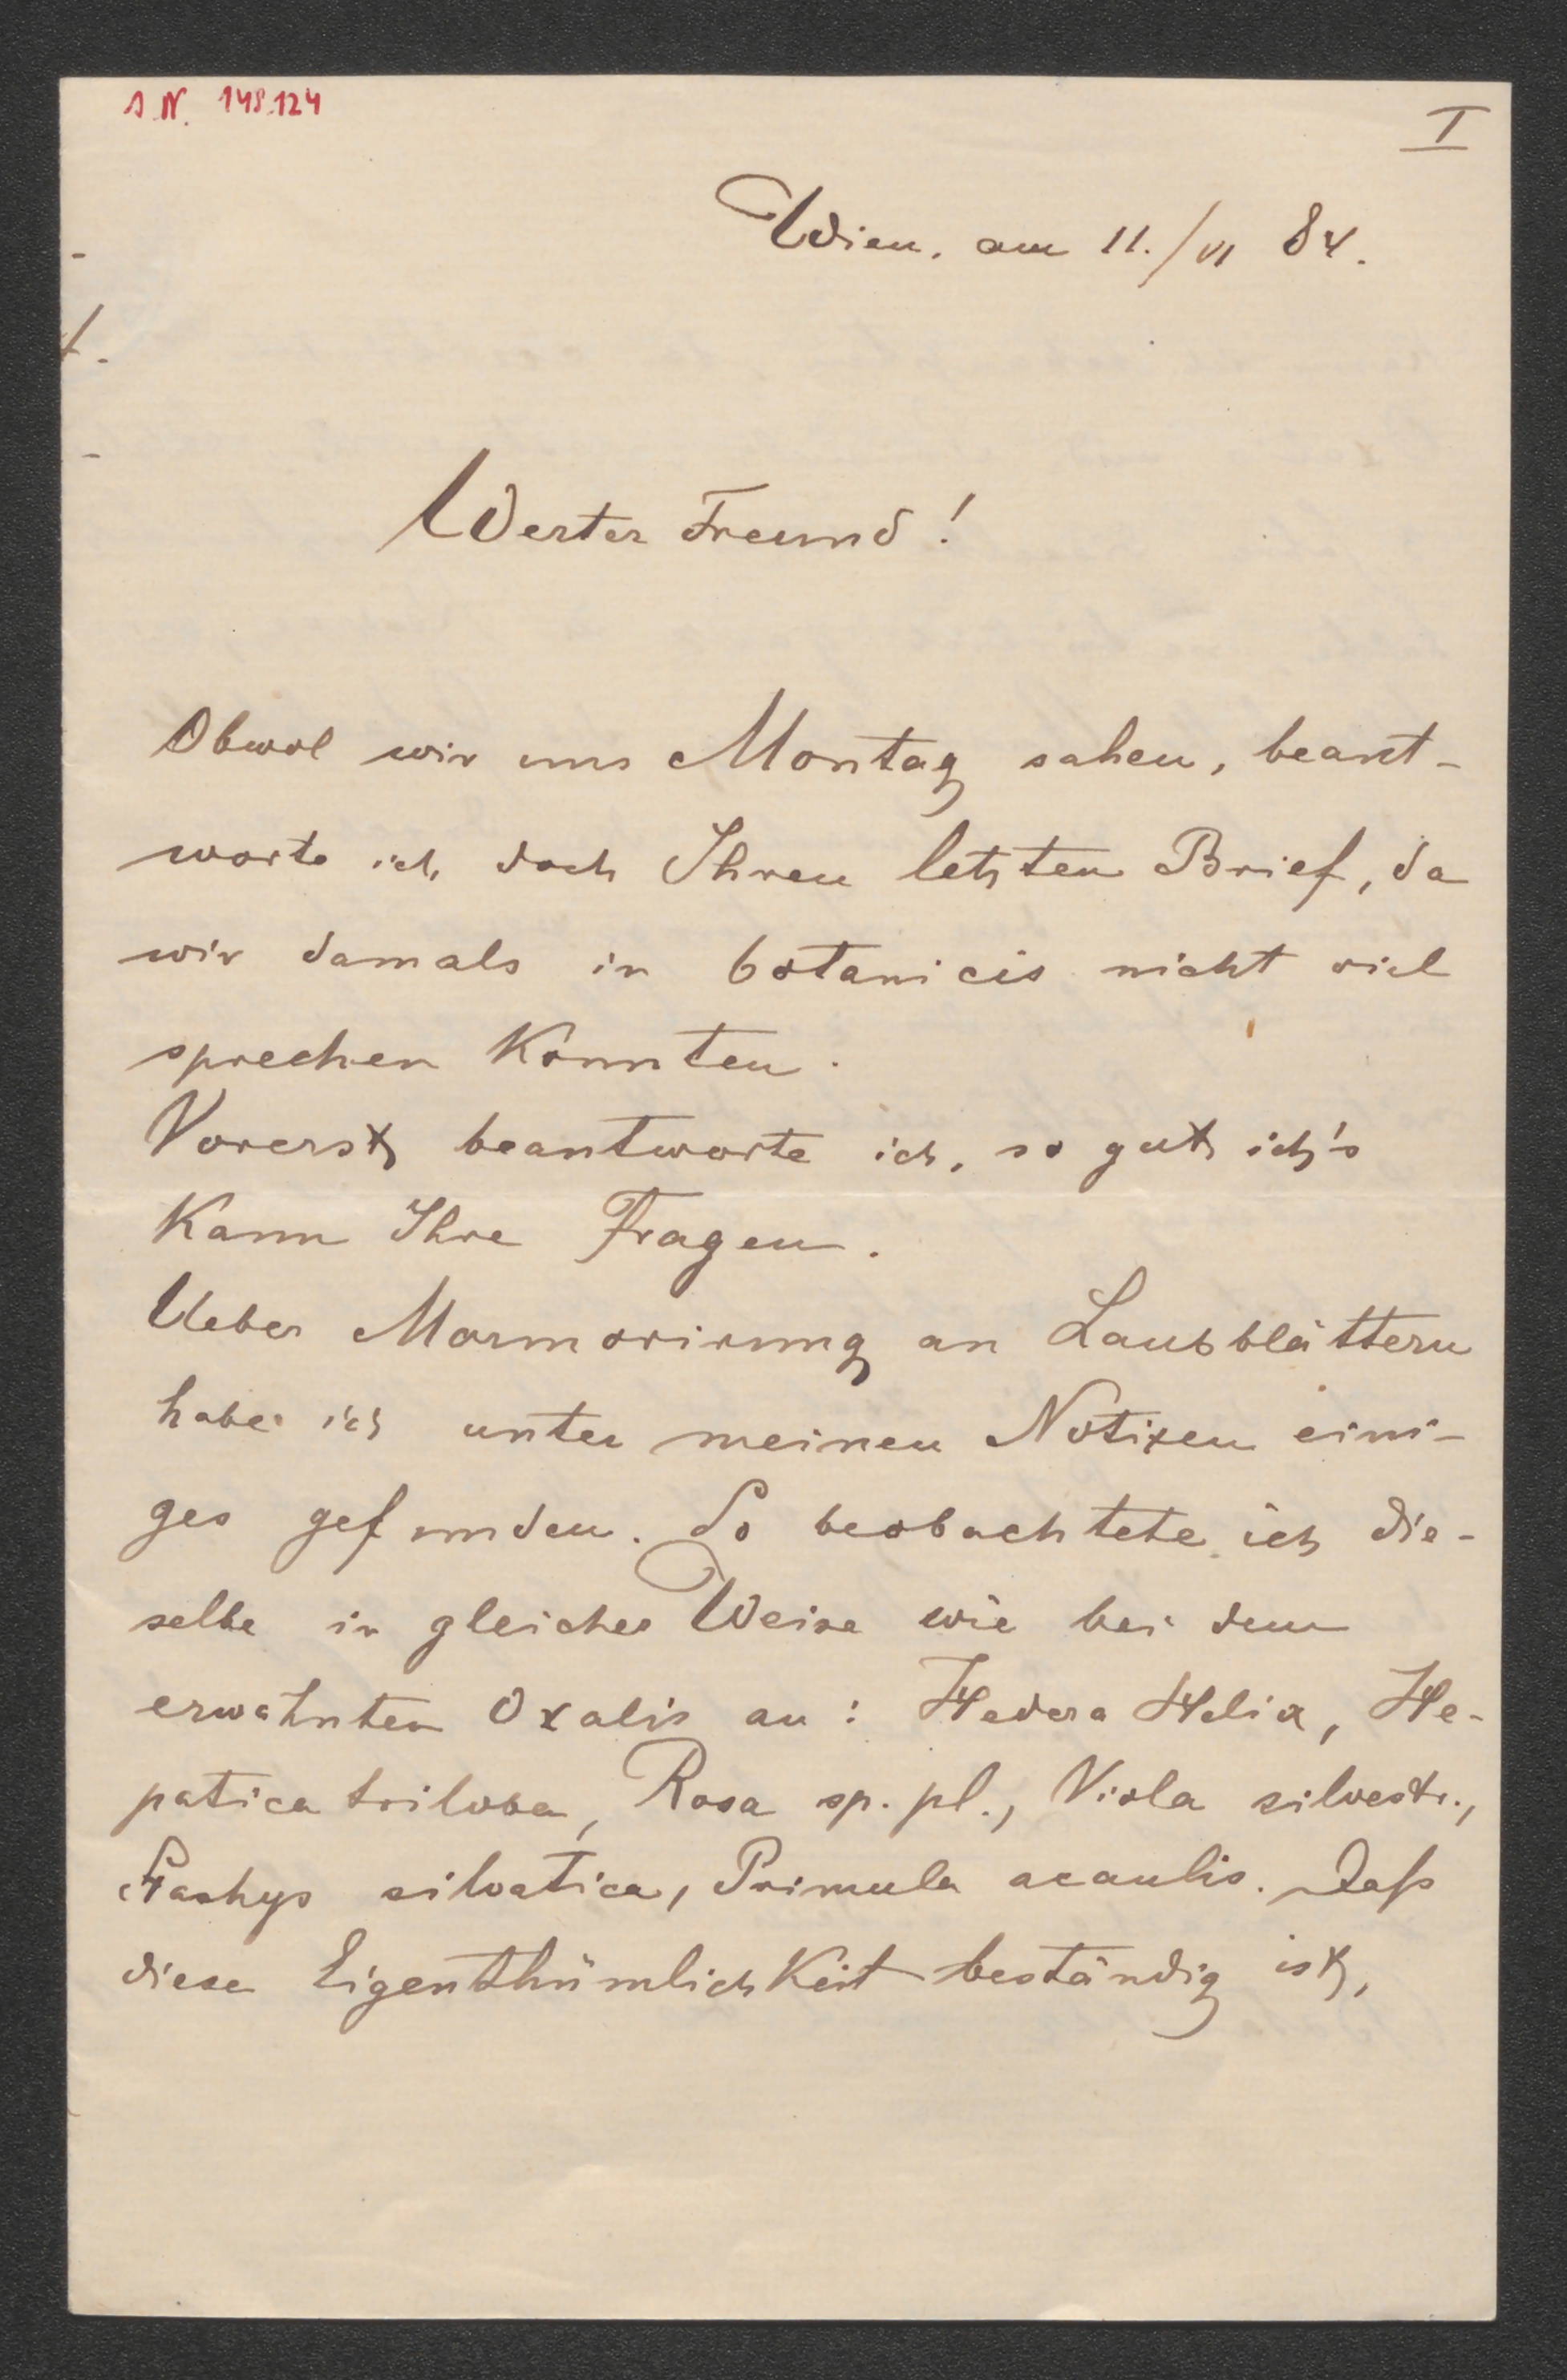 I. N. 148.124
I
Wien, am 11./VI 84.
Werter Freund!
Obwol wir uns Montag sahen, beant-
worte ich doch Ihren letzten Brief, da
wir damals in botanicis nicht viel
sprechen konnten.
Vorerst beantworte ich, so gut ich's
kann Ihre Fragen.
Ueber Marmorirung an Laubblättern
habe ich unter meinen Notizen eini-
ges gefunden. So beobachtete ich die-
selbe in gleicher Weise wie bei dem
erwähnten Oxalis an: Hedera Helix, He-
patica triloba, Rosa sp. pl., Viola silvestr.,
Stachys silvatica, Primula acaulis. Daß
diese Eigenthümlichkeit beständig ist,